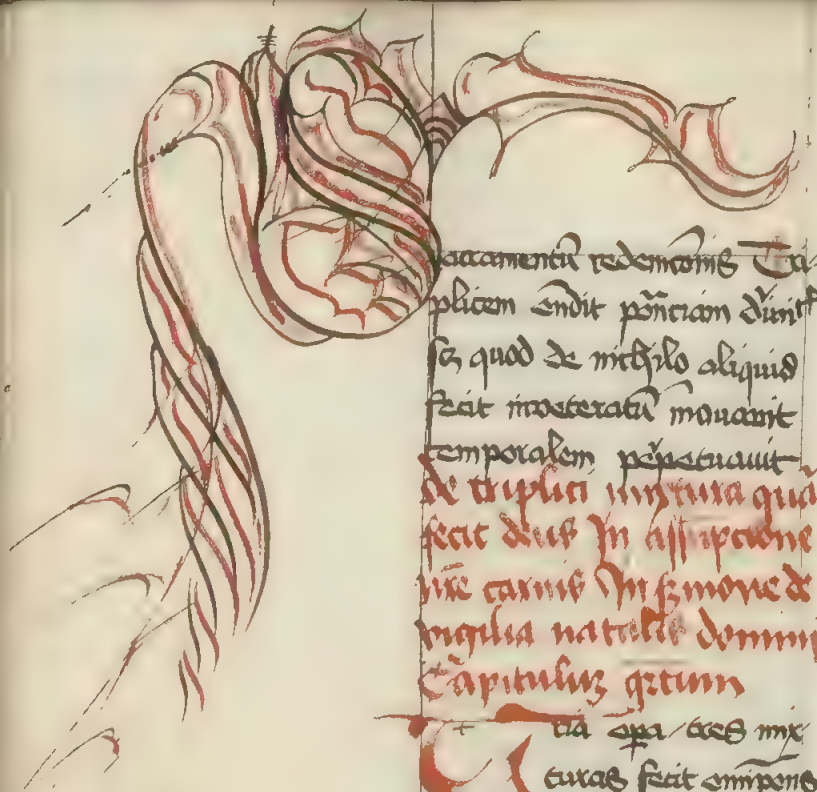 sacramentū redempcōnis Tri-
plicem ondit potnciam diuit
sꝫ quod de nichilo aliquid
fecit inveteratū innouauit
temporalem perpetuauit
de triplici mixtura quā
fecit deus In assūpcione
nr̄e carnis In s̄mone de
vigilia natalis domini
Capituluꝫ qrtum
Tria opa tres mix
turas fecit omnipōns